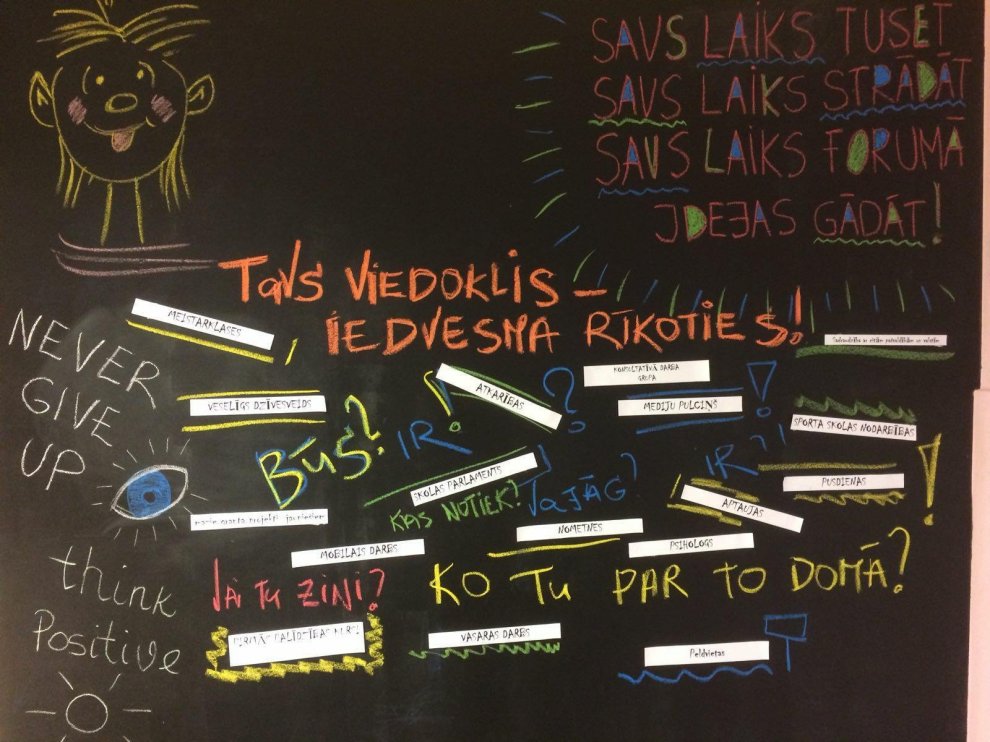 SAVS LAIKS TUSĒT
SAVS LAIKS STRĀDĀT
SAVS LAIKS FORUMĀ
IDEJAS GĀDĀT!
TAVS VIEDOKLIS –
IEDVESMA RĪKOTIES!
NEVER
GIVE
UP
MEISTARKLASES
VESELĪGS DZĪVESVEIDS
ATKARĪBAS
KONSULTATĪVĀ DARBA
GRUPA
MEDIJU PULCIŅŠ
SPORTA SKOLAS NODARBĪBAS
BŪS?
IR!
?
!
SKOLAS PARLAMENTS
KAS NOTIEK?
VAJAG?
IR?!
APTAUJAS
PUSDIENAS
!
NOMETNES
PSIHOLOGS
MOBILAIS DARBS
think
Positive
VAI TU ZINI?
KO TU PAR TO DOMĀ?
PIRMĀS PALĪDZĪBAS
VASARAS DARBS
Peldvietas